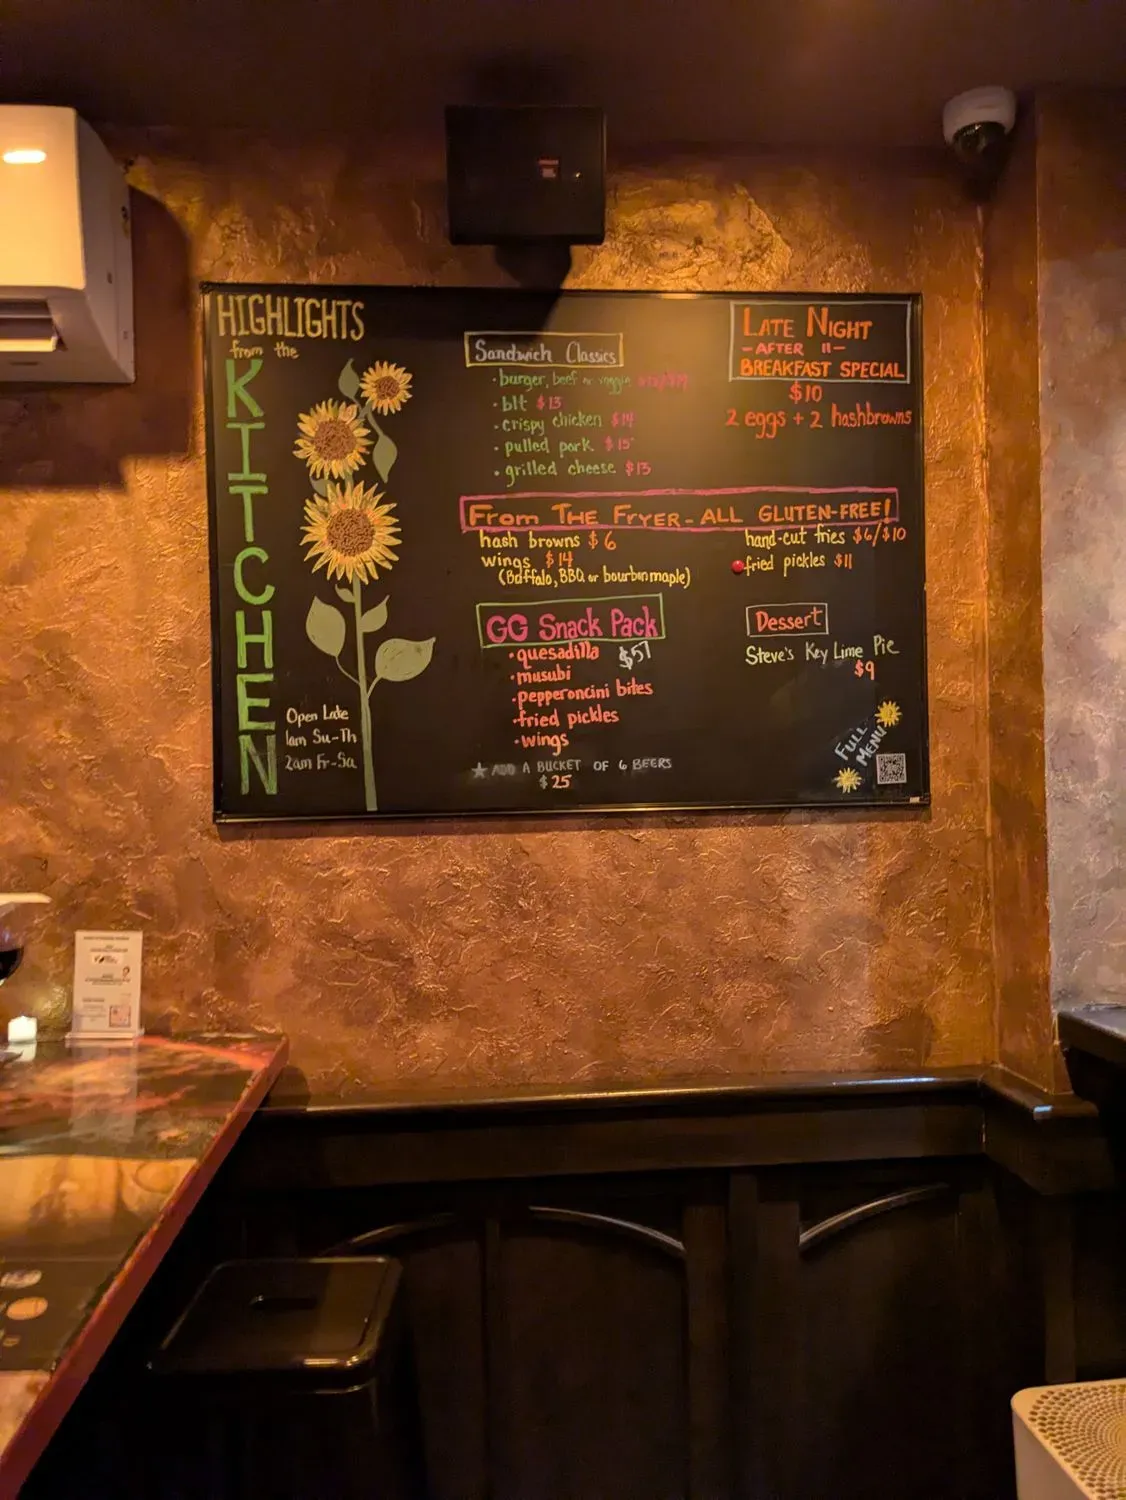 HIGHLIGHTS
from the
KITCHEN
Open Late
1am Su-Th
2am Fr-Sa
Sandwich Classics
• burger, beef or veggie
• blt $13
• crispy chicken $14
• pulled pork $15
• grilled cheese $13
LATE NIGHT
- AFTER 11 -
BREAKFAST SPECIAL
$10
2 eggs + 2 hashbrowns
FROM THE FRYER - ALL GLUTEN-FREE!
hash browns $6
wings $14
(Buffalo, BBQ or bourbon maple)
hand-cut fries $6/$10
fried pickles $11
GG Snack Pack
• quesadilla $57
• musubi
• pepperoncini bites
• fried pickles
• wings
★ ADD A BUCKET OF 6 BEERS
$25
Dessert
Steve's Key Lime Pie
$9
FULL
MENU